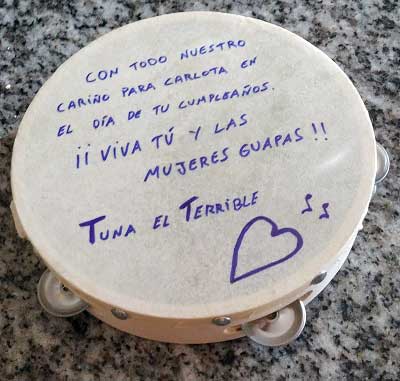 CON TODO NUESTRO
CARIÑO PARA CARLOTA EN
EL DÍA DE TU CUMPLEAÑOS.
¡¡ VIVA TÚ Y LAS
MUJERES GUAPAS !!
TUNA EL TERRIBLE